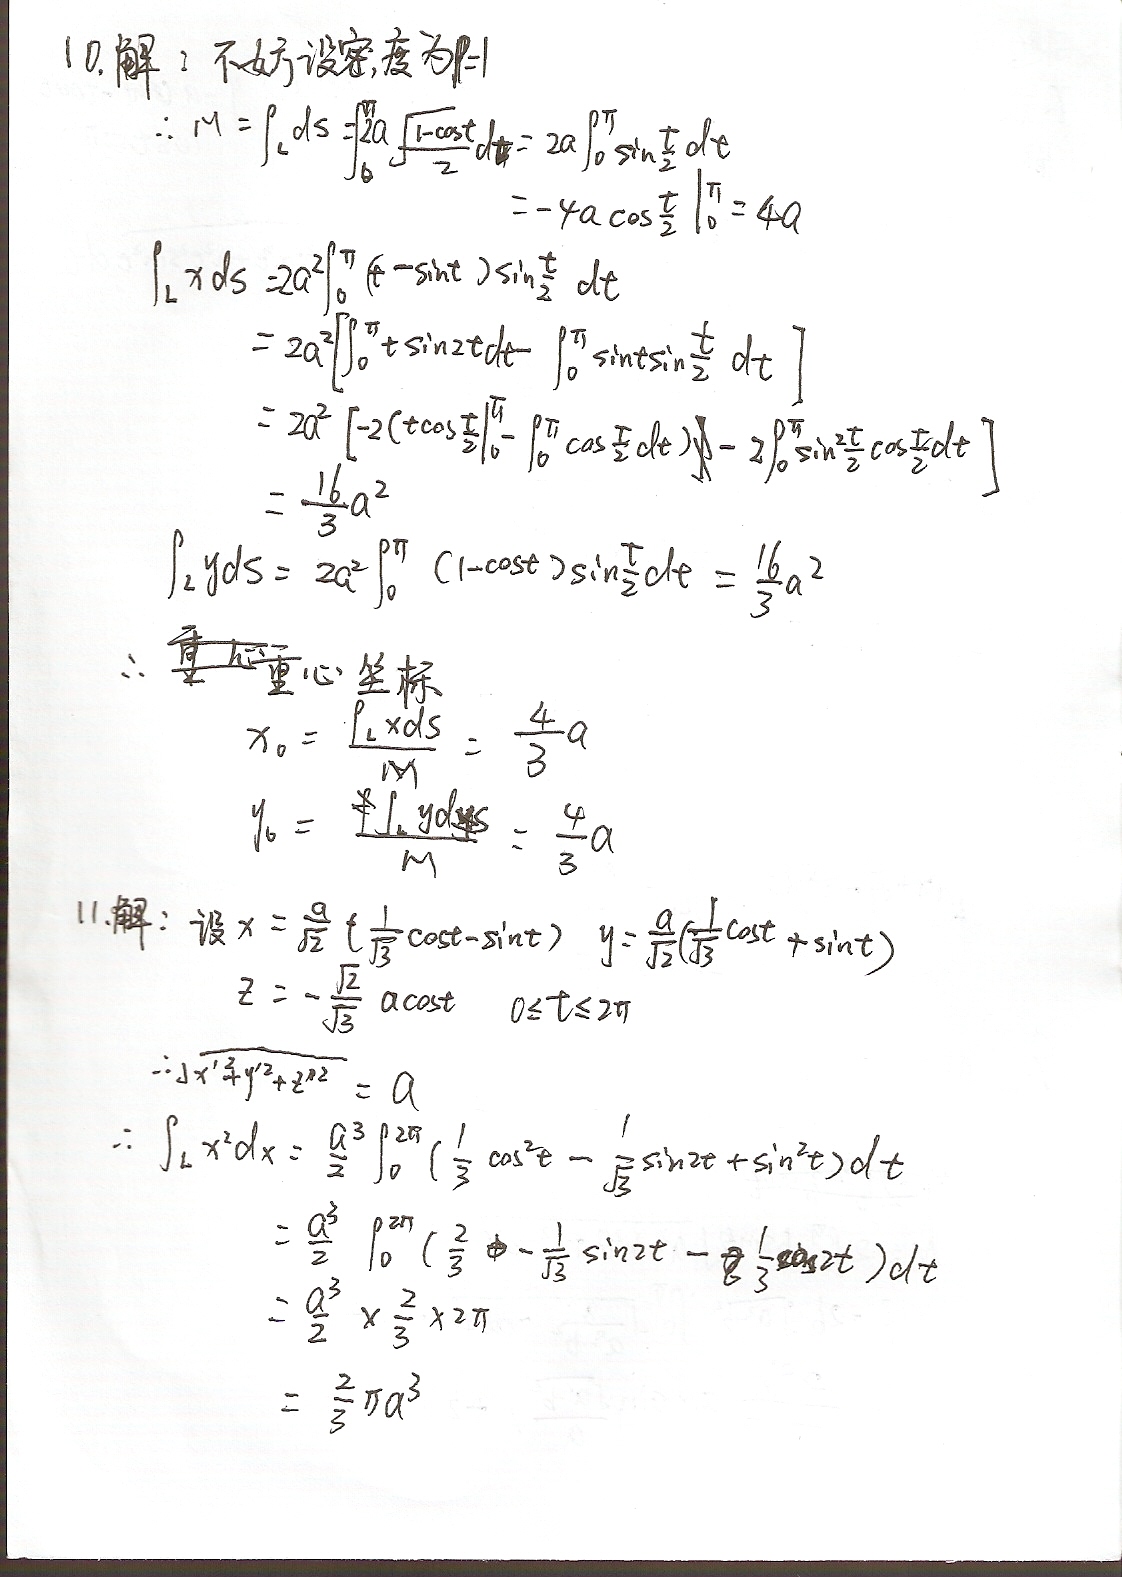 10.解：不妨设密度为ρ=1
∴ M = ∫_L ds = ∫_0^π 2a √((1-cost)/2) dt = 2a ∫_0^π sin t/2 dt
= -4a cos t/2 |_0^π = 4a
∫_L xds = 2a² ∫_0^π (t - sint) sin t/2 dt
= 2a² [∫_0^π t sin2t dt - ∫_0^π sint sin t/2 dt]
= 2a² [-2(t cos t/2 |_0^π - ∫_0^π cos t/2 dt) - 2∫_0^π sin² t/2 cos t/2 dt]
= 16/3 a²
∫_L yds = 2a² ∫_0^π (1-cost) sin t/2 dt = 16/3 a²
∴ 重心坐标
x₀ = ∫_L xds / M = 4/3 a
y₀ = ∫_L yds / M = 4/3 a
11.解：设 x = a/√2 (1/√3 cost - sint) y = a/√2 (1/√3 cost + sint)
z = - √2/√3 a cost 0 ≤ t ≤ 2π
∴ √(x'² + y'² + z'²) = a
∴ ∫_L x² dx = a³/2 ∫_0^2π (1/3 cos²t - 1/√3 sin2t + sin²t) dt
= a³/2 ∫_0^2π (2/3 - 1/√3 sin2t - 1/3 cos2t) dt
= a³/2 × 2/3 × 2π
= 2/3 πa³